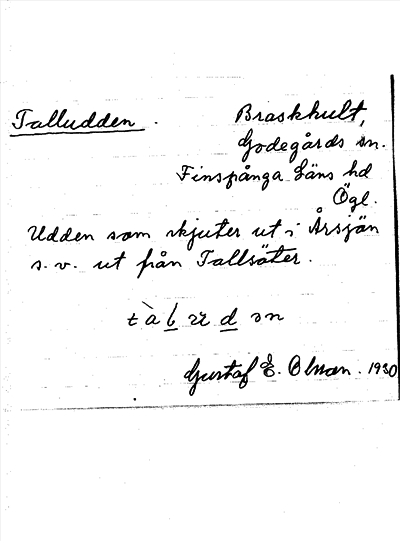 Talludden. Braskhult,
Godegårds sn.
Finspånga Läns hd
Ögl.
Udden som skjuter ut i Årsjön
s.v. ut från Tallsäter.
Gustaf E. Olsson. 1930